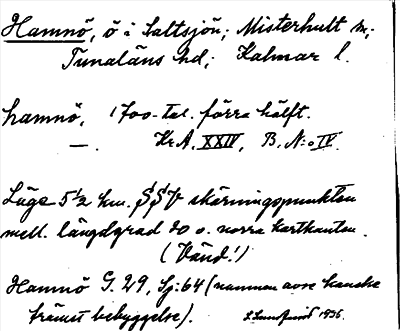 Hamnö, ö i Saltsjön; Misterhult sn;
Tunaläns hd; Kalmar l.
hamnö, 1700-tal. förra hälft.
—. Kr.A. XXIV, B, N:o IV.
Läge 5½ km. SSV skärningspunkten
mell. längdgrad 20 o. norra kartkanten.
(Vänd!)
Hamnö G. 29, Sj: 64 (numman avse kanske
främst bebyggelse). 1936.